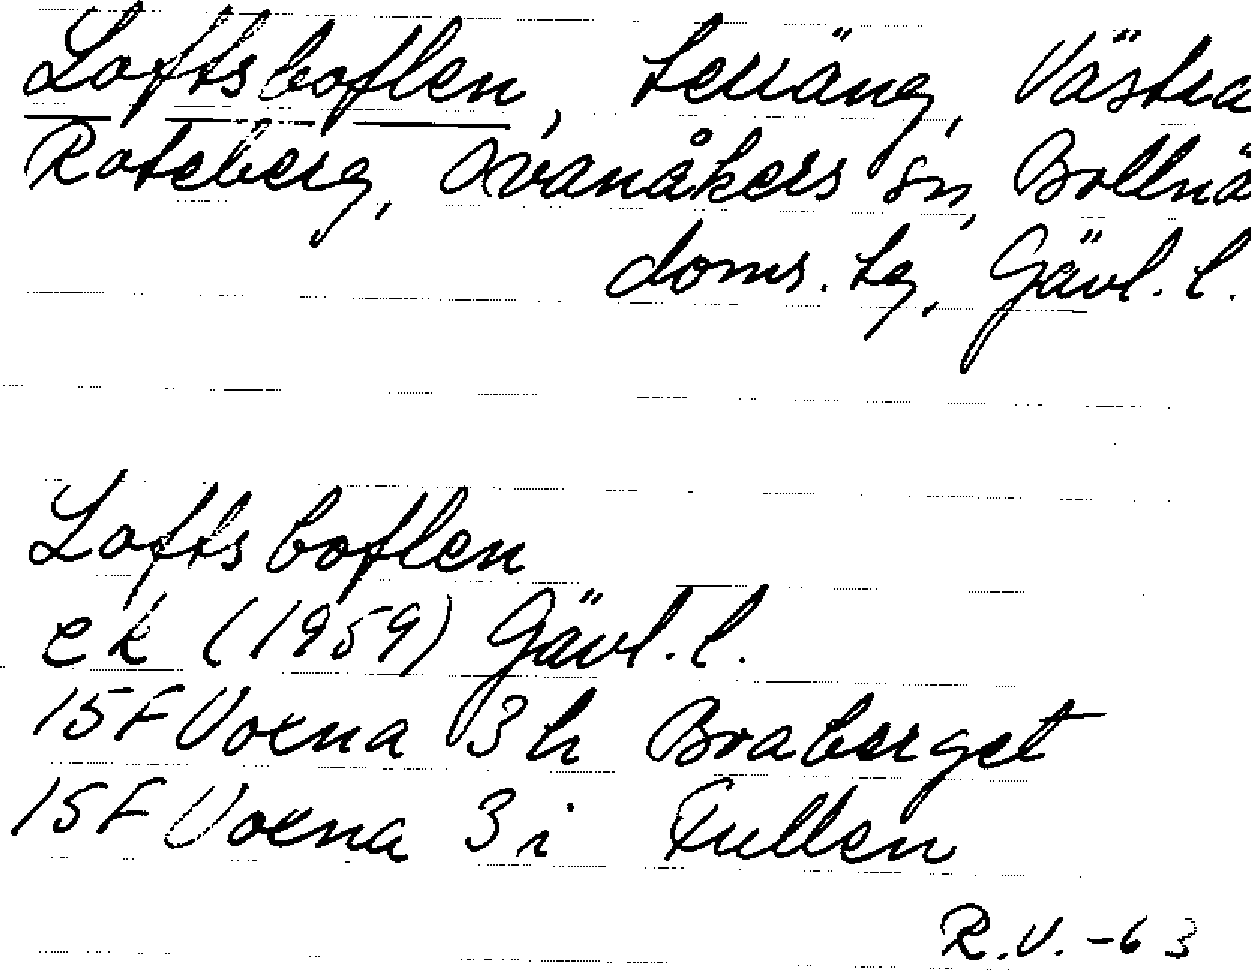 Loftsboflen, terräng, Västra
Roteberg, Ovanåkers sn, Bollnä
doms. tg, Gävl. l.
Loftsboflen
ek (1959) Gävl. l.
15F Voxna 3h Braberget
15F Voxna 3i Fullen
R.V. -63